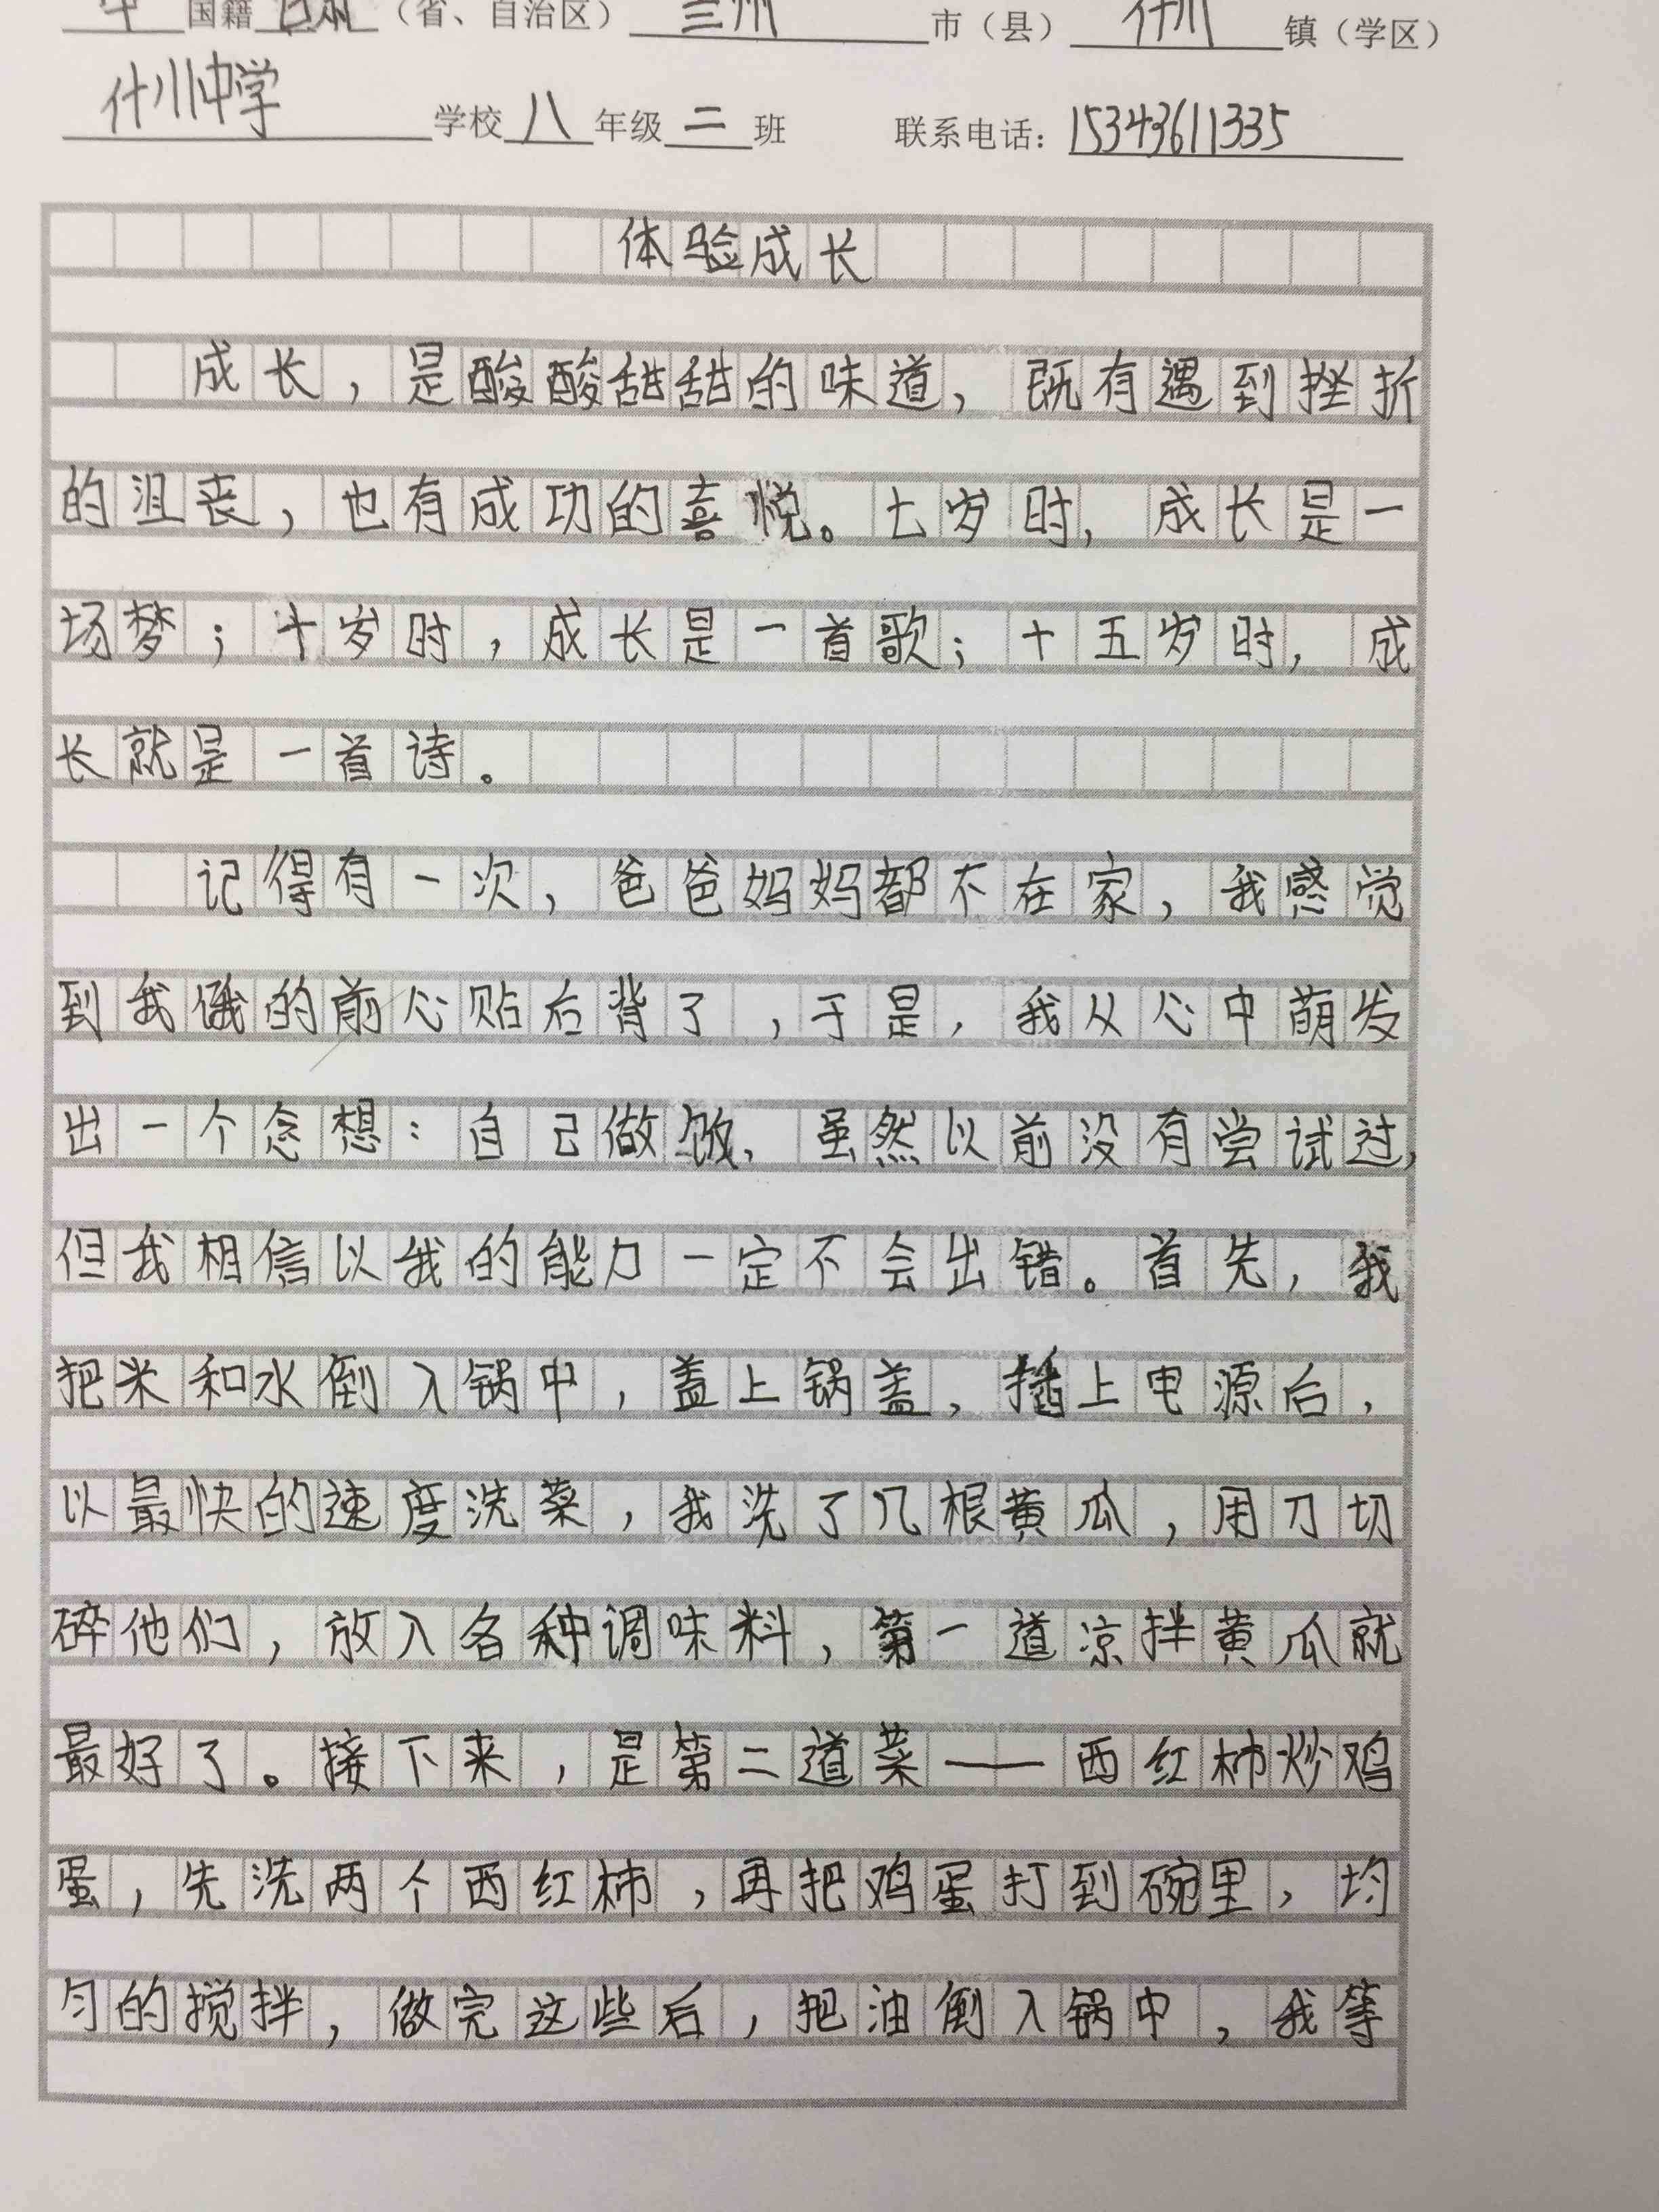 中国籍甘肃(省、自治区)兰州市(县)什川镇(学区)
什川中学学校八年级二班 联系电话:15343611335
体验成长
成长,是酸酸甜甜的味道,既有遇到挫折
的沮丧,也有成功的喜悦。七岁时,成长是一
场梦;十岁时,成长是一首歌;十五岁时,成
长就是一首诗。
记得有一次,爸爸妈妈都不在家,我感觉
到我饿的前心贴后背了,于是,我从心中萌发
出一个念想:自己做饭,虽然以前没有尝试过,
但我相信以我的能力一定不会出错。首先,我
把米和水倒入锅中,盖上锅盖,插上电源后,
以最快的速度洗菜,我洗了几根黄瓜,用刀切
碎他们,放入各种调味料,第一道凉拌黄瓜就
最好了。接下来,是第二道菜——西红柿炒鸡
蛋,先洗两个西红柿,再把鸡蛋打到碗里,均
匀的搅拌,做完这些后,把油倒入锅中,我等